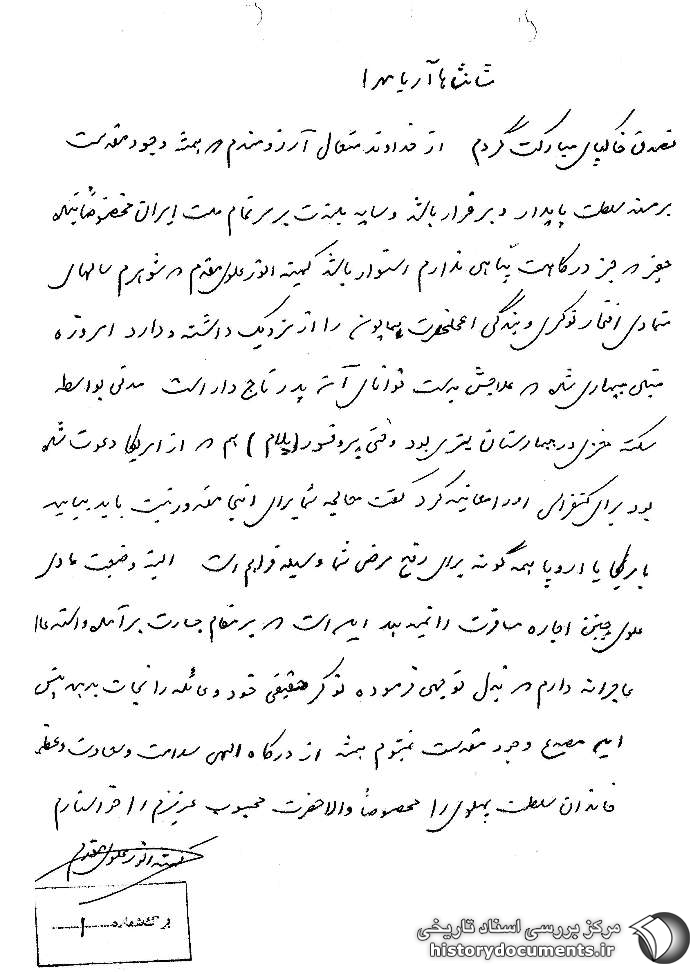 شاهنشاها آریامهرا
تصدق خاکپای مبارکت گردم از خداوند متعال آرزومندم که همیشه وجود مقدست
بر مسند سلطنت پایدار و برقرار باشد و سایه بلندت بر سر تمام ملت ایران مخصوصاً بنده
حقیر که جز درگاهت پناهی ندارم استوار باشد کمینه انور علوی مقدم که شوهرم سالهای
متمادی افتخار نوکری و بندگی اعلیحضرت همایون را از نزدیک داشته و دارد امروزه
مبتلی به بیماری شده که علاجش بدست توانای آن پدر تاجدار است مدتی بواسطه
سکته مغزی در بیمارستان بستری بود وقتی پروفسور (پلام) هم که از امریکا دعوت شده
بود برای کنفرانس او را معاینه کرد گفت معالجه شما برای اینجا مقدور نیست باید بیایید
بامریکا یا اروپا همه گونه برای رفع مرض شما وسیله فراهم است البته وضعیت مادی
علوی چنین اجازه مسافرت را نمیدهد این است که در مقام جسارت برآمده و استدعا
عاجزانه دارم که بذل توجهی فرموده نوکر حقیقی خود و عائله را نجات بدهید بیش
از این مصدع وجود مقدست نمیشوم همیشه از درگاه الهی سلامت و سعادت و عظمت
خاندان سلطنت پهلوی را مخصوصاً والاحضرت محبوب عزیزم را خواستارم
کمینه انور علوی مقدم
برگ شماره ۱
مرکز بررسی اسناد تاریخی
historydocuments.ir